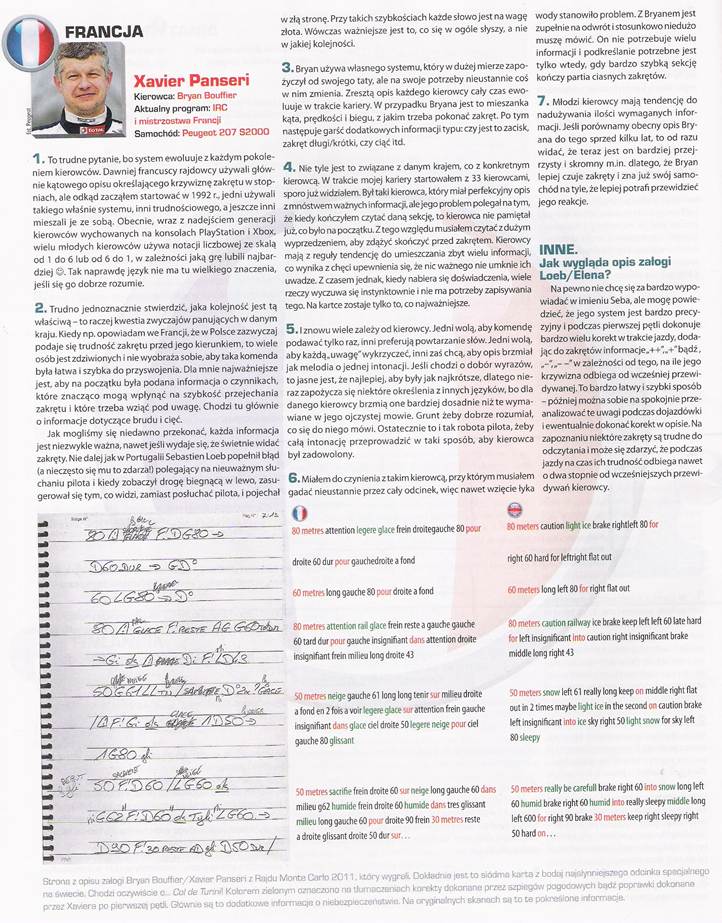 FRANCJA
Xavier Panseri
Kierowca: Bryan Bouffier
Aktualny program: IRC
i mistrzostwa Francji
Samochód: Peugeot 207 S2000
1. To trudne pytanie, bo system ewoluuje z każdym pokole-
niem kierowców. Dawniej francuscy rajdowcy używali głów-
nie kątowego opisu określającego krzywiznę zakrętu w stop-
niach, ale odkąd zacząłem startować w 1992 r., jedni używali
takiego właśnie systemu, inni trudnościowego, a jeszcze inni
mieszali je ze sobą. Obecnie, wraz z nadejściem generacji
kierowców wychowanych na konsolach PlayStation i Xbox,
wielu młodych kierowców używa notacji liczbowej ze skalą
od 1 do 6 lub od 6 do 1, w zależności jaką grę lubili najbar-
dziej ☺. Tak naprawdę język nie ma tu wielkiego znaczenia,
jeśli się go dobrze rozumie.
2. Trudno jednoznacznie stwierdzić, jaka kolejność jest tą
właściwą – to raczej kwestia zwyczajów panujących w danym
kraju. Kiedy np. opowiadam we Francji, że w Polsce zazwyczaj
podaje się trudność zakrętu przed jego kierunkiem, to wiele
osób jest zdziwionych i nie wyobraża sobie, aby taka komenda
była łatwa i szybka do przyswojenia. Dla mnie najważniejsze
jest, aby na początku była podana informacja o czynnikach,
które znacząco mogą wpłynąć na szybkość przejechania
zakrętu i które trzeba wziąć pod uwagę. Chodzi tu głównie
o informacje dotyczące brudu i cięć.
Jak mogliśmy się niedawno przekonać, każda informacja
jest niezwykle ważna, nawet jeśli wydaje się, że świetnie widać
zakręty. Nie dalej jak w Portugalii Sebastien Loeb popełnił błąd
(a nieczęsto się mu to zdarza!) polegający na nieuważnym słu-
chaniu pilota i kiedy zobaczył drogę biegnącą w lewo, zasu-
gerował się tym, co widzi, zamiast posłuchać pilota, i pojechał
w złą stronę. Przy takich szybkościach każde słowo jest na wagę
złota. Wówczas ważniejsze jest to, co się w ogóle słyszy, a nie
w jakiej kolejności.
3. Bryan używa własnego systemu, który w dużej mierze zapo-
życzył od swojego taty, ale na swoje potrzeby nieustannie coś
w nim zmienia. Zresztą opis każdego kierowcy cały czas ewo-
luuje w trakcie kariery. W przypadku Bryana jest to mieszanka
kąta, prędkości i biegu, z jakim trzeba pokonać zakręt. Po tym
następuje garść dodatkowych informacji typu: czy jest to zacisk,
zakręt długi/krótki, czy ciąć itd.
4. Nie tyle jest to związane z danym krajem, co z konkretnym
kierowcą. W trakcie mojej kariery startowałem z 33 kierowcami,
sporo już widziałem. Był taki kierowca, który miał perfekcyjny opis
z mnóstwem ważnych informacji, ale jego problem polegał na tym,
że kiedy kończyłem czytać daną sekcję, to kierowca nie pamiętał
już, co było na początku. Z tego względu musiałem czytać z dużym
wyprzedzeniem, aby zdążyć skończyć przed zakrętem. Kierowcy
mają z reguły tendencję do umieszczania zbyt wielu informacji,
co wynika z chęci upewnienia się, że nic ważnego nie umknie ich
uwadze. Z czasem jednak, kiedy nabiera się doświadczenia, wiele
rzeczy wyczuwa się instynktownie i nie ma potrzeby zapisywania
tego. Na kartce zostaje tylko to, co najważniejsze.
5. I znowu wiele zależy od kierowcy. Jedni wolą, aby komendę
podawać tylko raz, inni preferują powtarzanie słów. Jedni wolą,
aby każdą „uwagę" wykrzyczeć, inni zaś chcą, aby opis brzmiał
jak melodia o jednej intonacji. Jeśli chodzi o dobór wyrazów,
to jasne jest, że najlepiej, aby były jak najkrótsze, dlatego nie-
raz zapożycza się niektóre określenia z innych języków, bo dla
danego kierowcy brzmią one bardziej dosadnie niż te wyma-
wiane w jego ojczystej mowie. Grunt żeby dobrze rozumiał,
co się do niego mówi. Ostatecznie to i tak robota pilota, żeby
całą intonację przeprowadzić w taki sposób, aby kierowca
był zadowolony.
6. Miałem do czynienia z takim kierowcą, przy którym musiałem
gadać nieustannie przez cały odcinek, więc nawet wzięcie łyka
wody stanowiło problem. Z Bryanem jest
zupełnie na odwrót i stosunkowo niedużo
muszę mówić. On nie potrzebuje wielu
informacji i podkreślanie potrzebne jest
tylko wtedy, gdy bardzo szybką sekcję
kończy partia ciasnych zakrętów.
7. Młodzi kierowcy mają tendencję do
nadużywania ilości wymaganych infor-
macji. Jeśli porównamy obecny opis Bry-
ana do tego sprzed kilku lat, to od razu
widać, że teraz jest on bardziej przej-
rzysty i skromny m.in. dlatego, że Bryan
lepiej czuje zakręty i zna już swój samo-
chód na tyle, że lepiej potrafi przewidzieć
jego reakcje.
INNE.
Jak wygląda opis załogi
Loeb/Elena?
Na pewno nie chcę się za bardzo wypo-
wiadać w imieniu Seba, ale mogę powie-
dzieć, że jego system jest bardzo precy-
zyjny i podczas pierwszej pętli dokonuje
bardzo wielu korekt w trakcie jazdy, doda-
jąc do zakrętów informacje „++",„+" bądź,
„–",„– –" w zależności od tego, na ile jego
krzywizna odbiega od wcześniej przewi-
dywanej. To bardzo łatwy i szybki sposób
– później można sobie na spokojnie prze-
analizować te uwagi podczas dojazdówki
i ewentualnie dokonać korekt w opisie. Na
zapoznaniu niektóre zakręty są trudne do
odczytania i może się zdarzyć, że podczas
jazdy na czas ich trudność odbiega nawet
o dwa stopnie od wcześniejszych przewi-
dywań kierowcy.
80 metres attention legere glace frein droitegauche 80 pour
droite 60 dur pour gauchedroite a fond
60 metres long gauche 80 pour droite a fond
80 metres attention rail glace frein reste a gauche gauche
60 tard dur pour gauche insignifiant dans attention droite
insignifiant frein milieu long droite 43
50 metres neige gauche 61 long long tenir sur milieu droite
a fond en 2 fois a voir legere glace sur attention frein gauche
insignifiant dans glace ciel droite 50 legere neige pour ciel
gauche 80 glissant
50 metres sacrifie frein droite 60 sur neige long gauche 60 dans
milieu g62 humide frein droite 60 humide dans tres glissant
milieu long gauche 60 pour droite 90 frein 30 metres reste
a droite glissant droite 50 dur sur…
80 meters caution light ice brake rightleft 80 for
right 60 hard for leftright flat out
60 meters long left 80 for right flat out
80 meters caution railway ice brake keep left left 60 late hard
for left insignificant into caution right insignificant brake
middle long right 43
50 meters snow left 61 really long keep on middle right flat
out in 2 times maybe light ice in the second on caution brake
left insignificant into ice sky right 50 light snow for sky left
80 sleepy
50 meters really be carefull brake right 60 into snow long left
60 humid brake right 60 humid into really sleepy middle long
left 600 for right 90 brake 30 meters keep right sleepy right
50 hard on…
Strona z opisu załogi Bryan Bouffier/Xavier Panseri z Rajdu Monte Carlo 2011, który wygrali. Dokładnie jest to siódma kartka z bodaj najsłynniejszego odcinka specjalnego
na świecie. Chodzi oczywiście o… Col de Turini! Kolorem zielonym oznaczono na tłumaczeniach korekty dokonane przez szpiegów pogodowych bądź poprawki dokonane
przez Xaviera po pierwszej pętli. Głównie są to dodatkowe informacje o niebezpieczeństwie. Na oryginalnych skanach są to te pokreślone informacje.